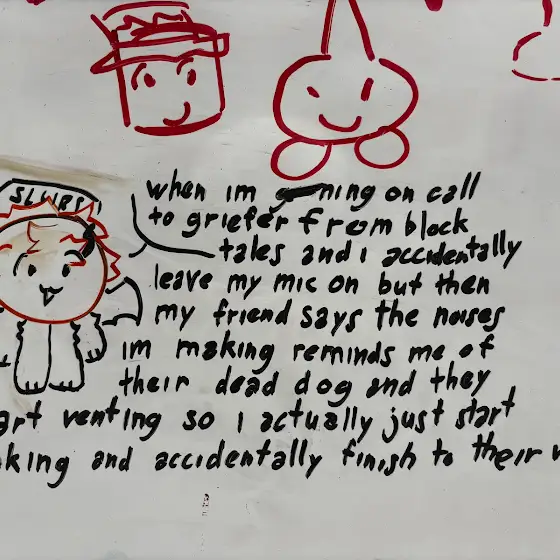 SLURBS
when im g ning on call
to griefer from block
tales and i accidentally
leave my mic on but then
my friend says the noises
im making reminds me of
their dead dog and they
art venting so i actually just start
king and accidentally finish to their